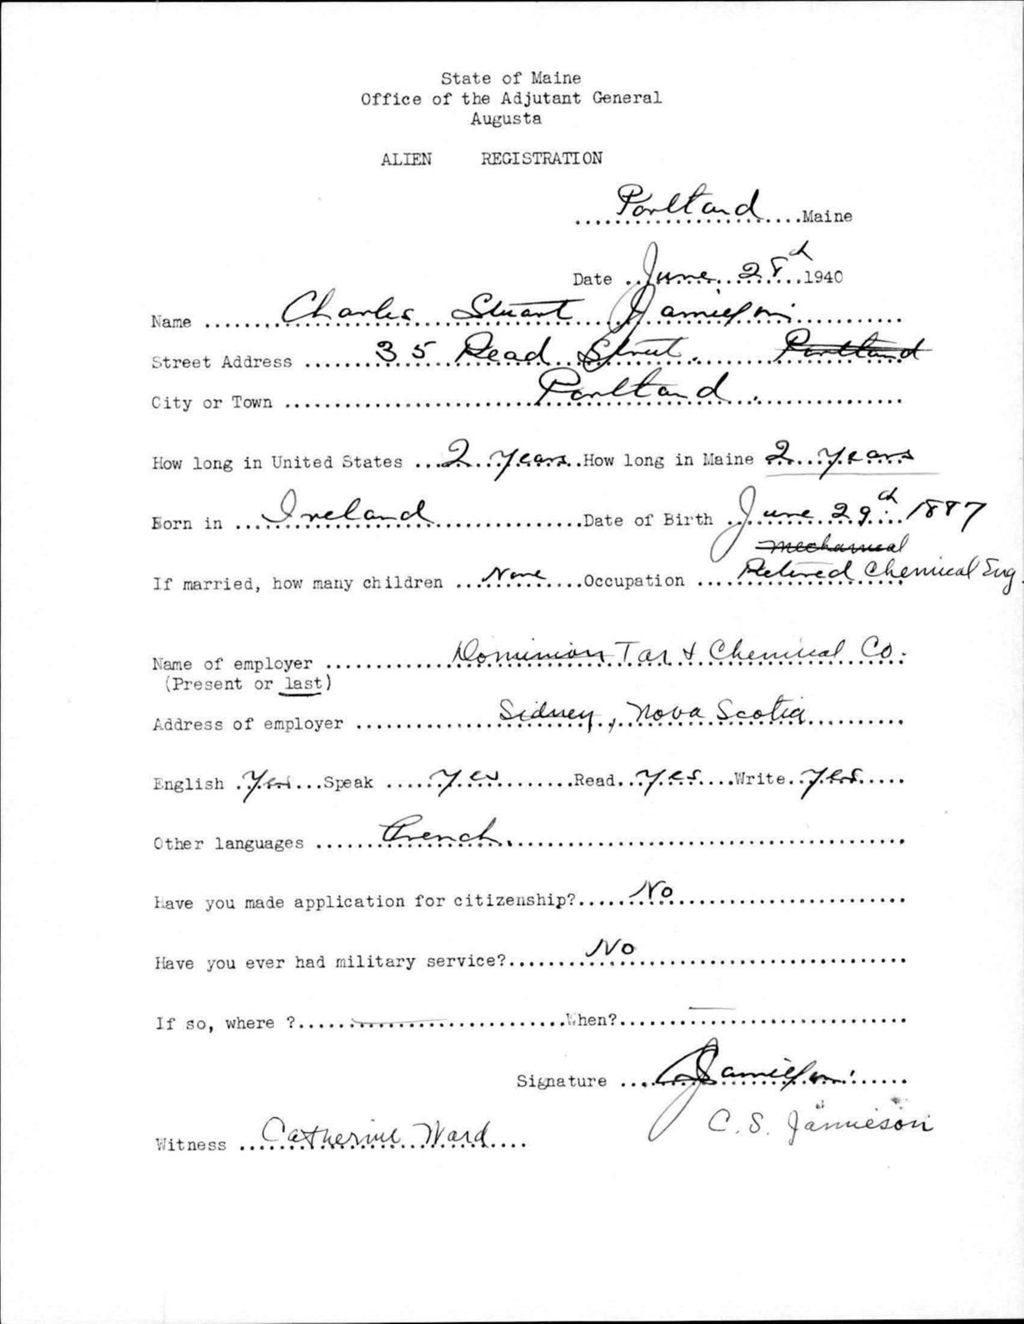 State of Maine
Office of the Adjutant General
Augusta
ALIEN REGISTRATION
Portland Maine
Date June 28th 1940
Name Charles Stuart Jamieson
Street Address 35 Read Street. Portland
City or Town Portland.
How long in United States 2 Years How long in Maine 2 Years
Born in Ireland Date of Birth June 29th 1887
Mechanical
If married, how many children None Occupation Retired Chemical Eng.
Name of employer Dominion Tar & Chemical Co.
(Present or last)
Address of employer Sidney, Nova Scotia
English Yes Speak Yes Read Yes Write Yes
Other languages French.
Have you made application for citizenship? No
Have you ever had military service? No
If so, where ? When?
Signature CSJamieson
C. S. Jamieson
Witness Catherine Ward